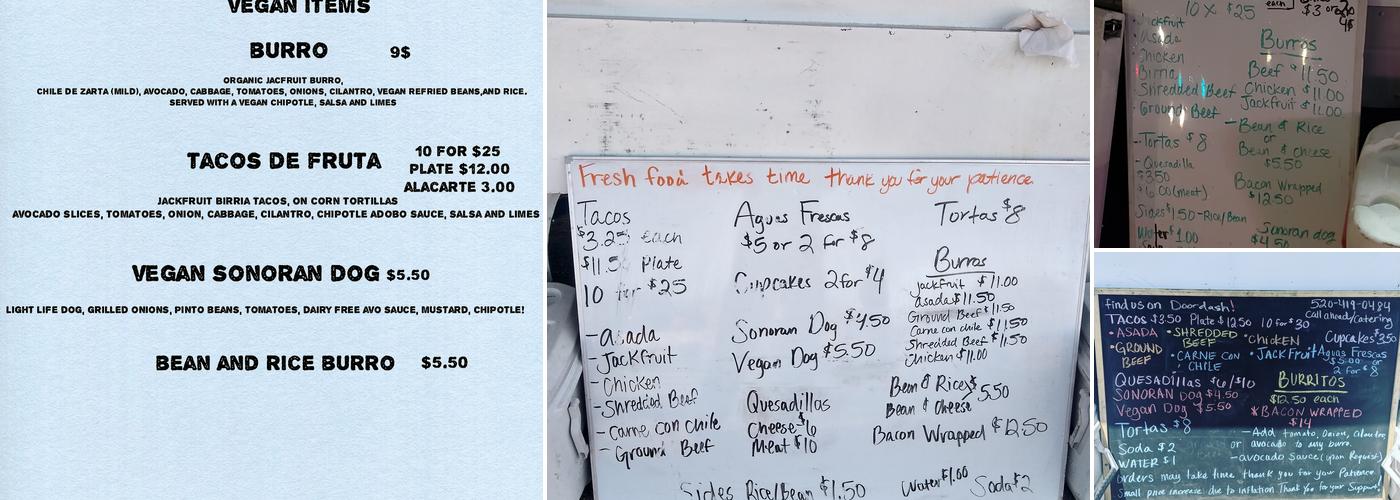 VEGAN ITEMS
BURRO 9$
ORGANIC JACFRUIT BURRO,
CHILE DE ZARTA (MILD), AVOCADO, CABBAGE, TOMATOES, ONIONS, CILANTRO, VEGAN REFRIED BEANS,AND RICE.
SERVED WITH A VEGAN CHIPOTLE, SALSA AND LIMES
TACOS DE FRUTA
10 FOR $25
PLATE $12.00
ALACARTE 3.00
JACKFRUIT BIRRIA TACOS, ON CORN TORTILLAS
AVOCADO SLICES, TOMATOES, ONION, CABBAGE, CILANTRO, CHIPOTLE ADOBO SAUCE, SALSA AND LIMES
VEGAN SONORAN DOG $5.50
LIGHT LIFE DOG, GRILLED ONIONS, PINTO BEANS, TOMATOES, DAIRY FREE AVO SAUCE, MUSTARD, CHIPOTLE!
BEAN AND RICE BURRO $5.50
Fresh food takes time thank you for your patience.
Tacos
$3.25 each
$11.5 Plate
10 for $25
- asada
- Jackfruit
- Chicken
- Shredded Beef
- Carne con chile
- Ground Beef
Aguas Frescas
$5 or 2 for $8
Cupcakes 2 for $4
Sonoran Dog $4.50
Vegan Dog $5.50
Quesadillas
Cheese $6
Meat $10
Tortas $8
Burros
jackfruit $11.00
asada $11.50
Ground Beef $11.50
Carne con chile $11.50
Shredded Beef $11.50
Chicken $11.00
Bean & Rice
Bean & Cheese $5.50
Bacon Wrapped $12.50
Sides Rice/Bean $1.50
Water $1.00
Soda $2
10 X $25
each
$3 or
Jackfruit
Asada
Chicken
Birria
Shredded Beef
Ground Beef
- Tortas $8
- Quesadilla
$3.50
$6.00 (meat)
Sides $1.50 - Rice/Bean
Water $1.00
Burros
Beef $11.50
Chicken $11.00
Jackfruit $11.00
- Bean & Rice
or
Bean & Cheese
$5.50
Bacon Wrapped
$12.50
Sonoran dog
$4.50
find us on Doordash!
520-419-0484
Call ahead/Catering
TACOS $3.50 Plate $12.50 10 for $30
• ASADA
• SHREDDED BEEF
• CHICKEN
• GROUND BEEF
• CARNE CON CHILE
• JACKFRUIT
Cupcakes $3.50
Aguas Frescas
$5.00 or
2 for $8
QUESADILLAS $6/$10
SONORAN DOG $4.50
Vegan Dog $5.50
Tortas $8
Soda $2
WATER $1
BURRITOS
$12.50 each
*BACON WRAPPED
$14
- Add tomato, Onion, Cilantro
or avocado to any burro.
- avocado sauce (upon Request)
orders may take time thank you for your Patience
Small price increase due to inflation Thank You for your Support